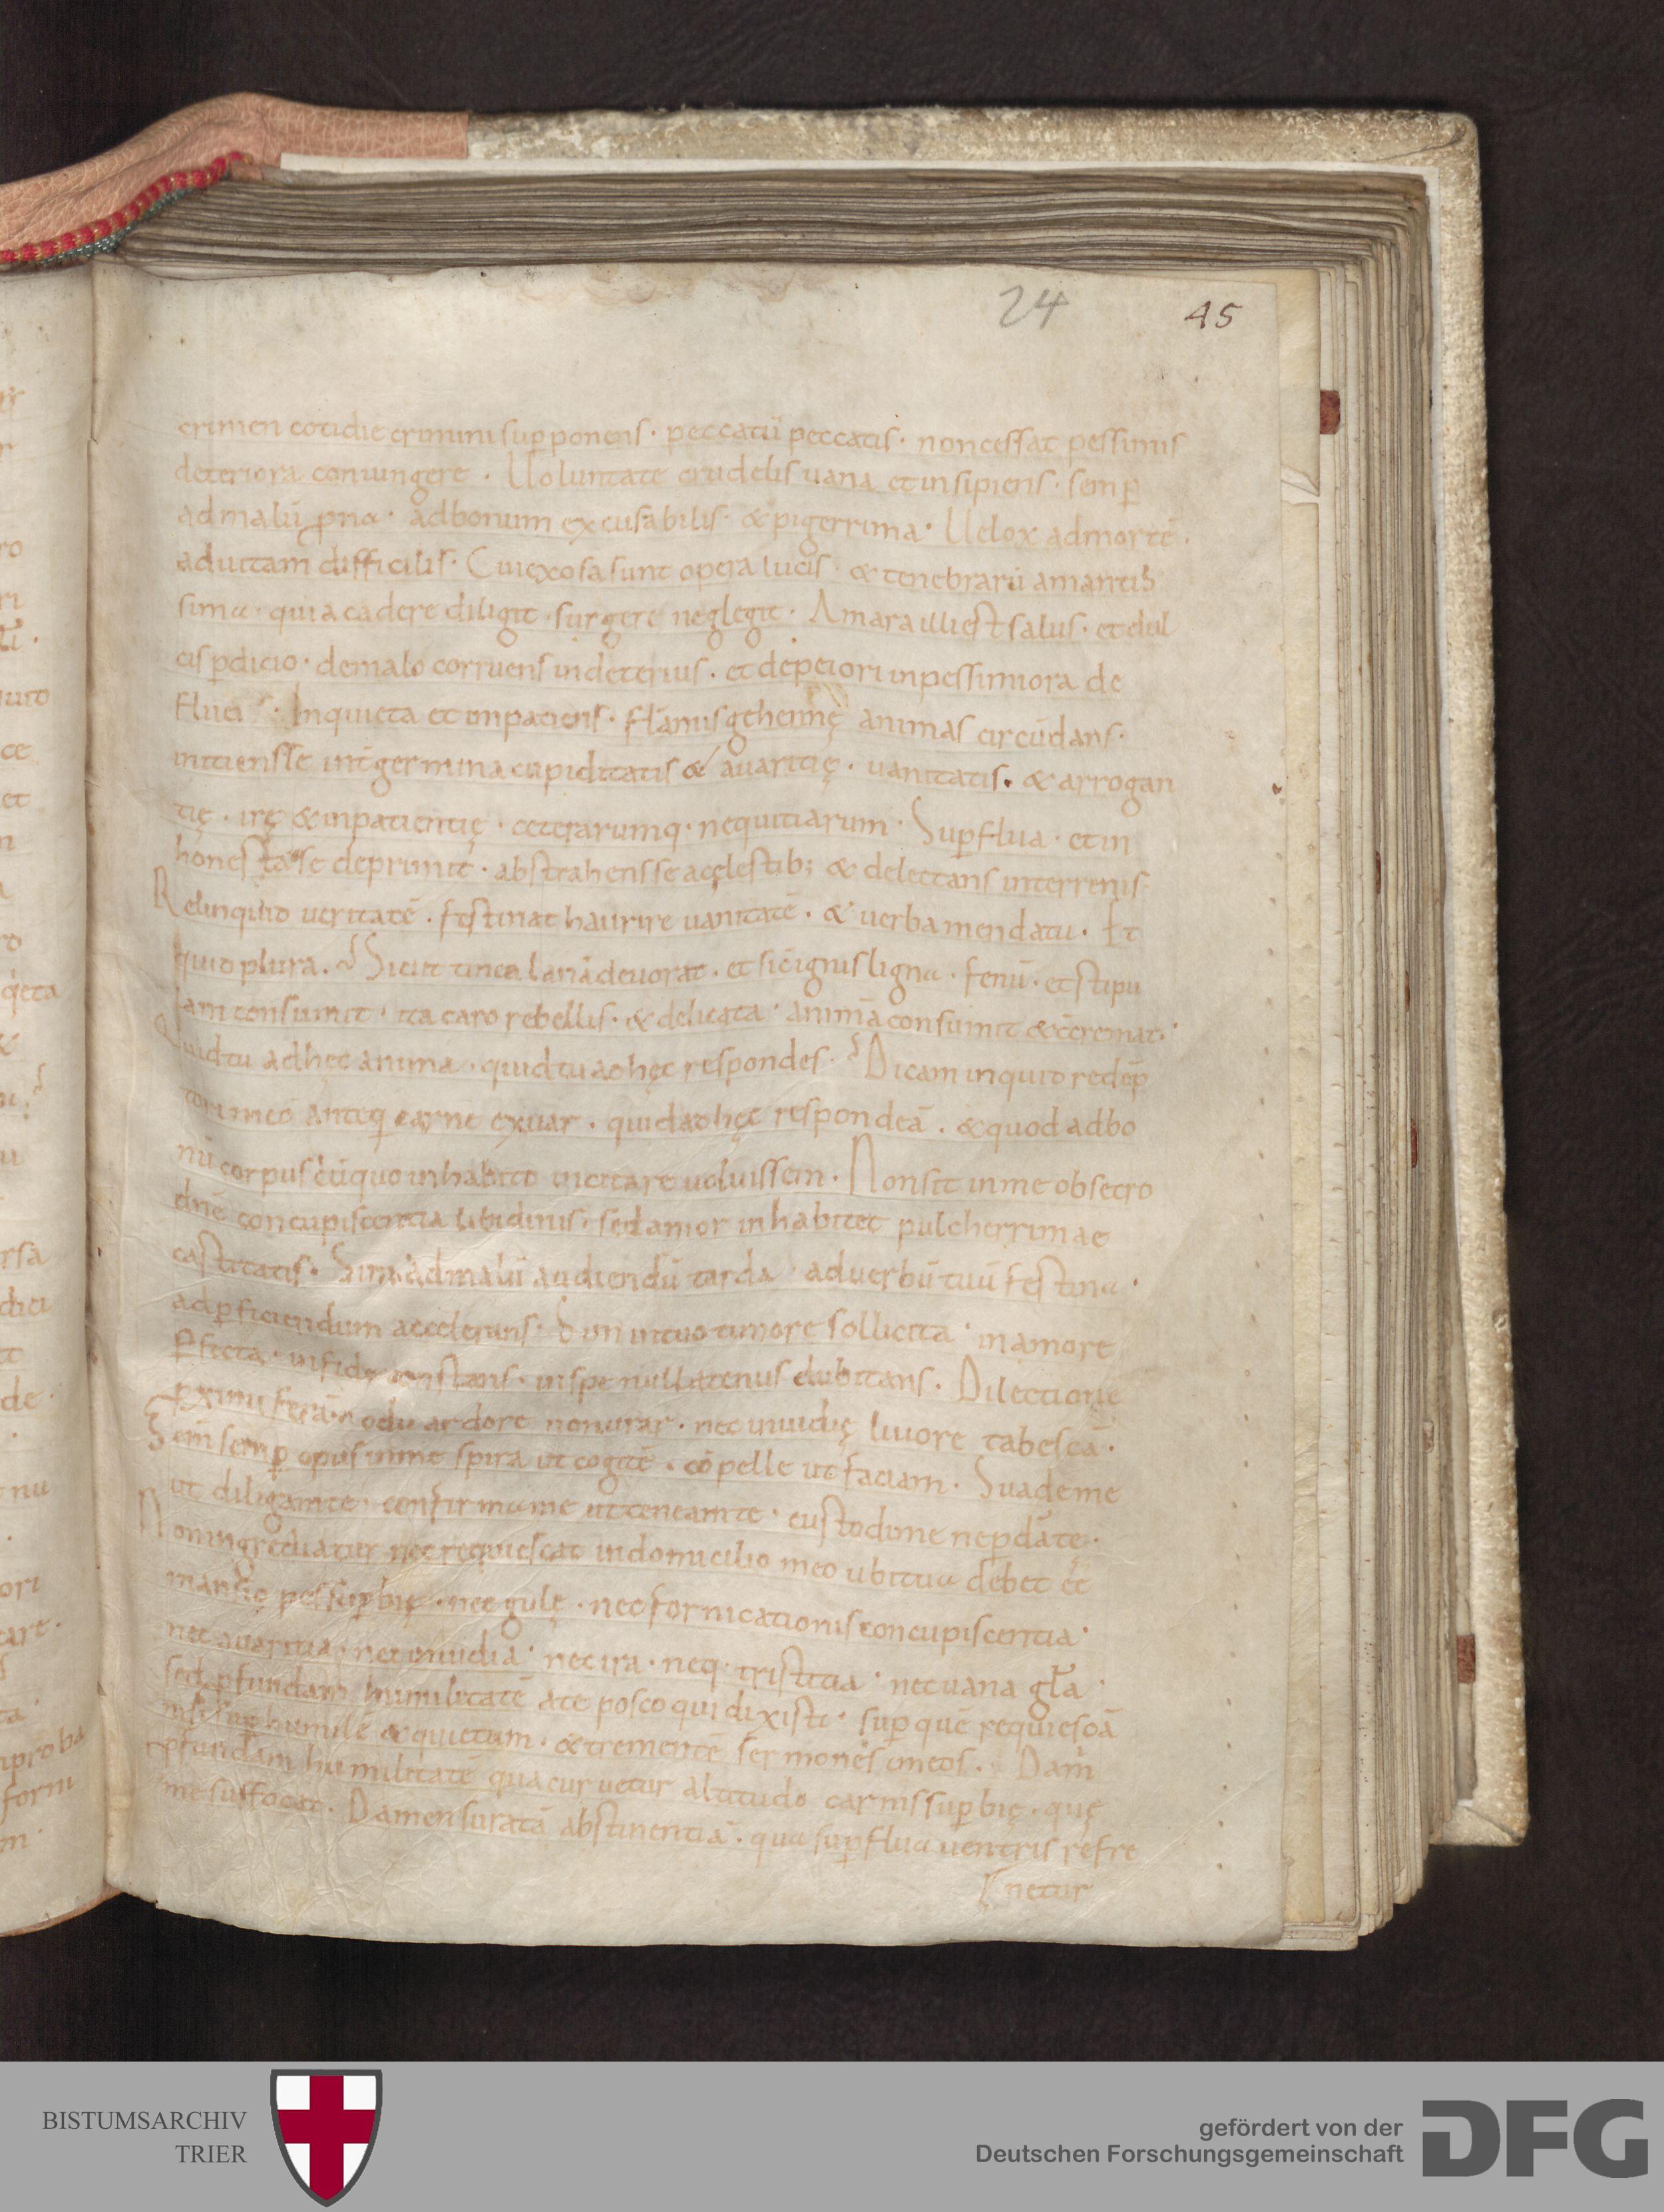 24 45
crimen cotidie crimini sup̄ponens · peccatū peccatis · non cessat pessimis
deteriora coniungere · Uoluntate crudelis uana et insipiens · semp̄
ad malū prona · ad bonum excusabilis · & pigerrima · Uelox ad mortē ·
ad uitam difficilis · Cui exosa sunt opera lucis · & tenebrarū amantis
sima · quia cadere diligit · surgere neglegit · Amara illi est salus · et dul
cis p̄dicio · de malo corruens in deterius · et de peiori in pessimiora de
fluens · Inquieta et inpaciens · flāmis gehennę animas circūdans ·
mittens se int̄ germina cupiditatis & auaritię · uanitatis · & arrogan
tię · irę & inpatientię · ceterarumq · nequitiarum · Sup̄flua · et in
honesta se deprimit · abstrahens se a cęlestib; & delectans in terrenis ·
Relinquit ueritatē · festinat haurire uanitatē · & uerba mendatii · Et
quid plura · Sicut tinea lanā deuorat · et sic ignis ligna · fenū · et stipu
lam consumit · ita caro rebellis · & delicata · animā consumit & cremat ·
Quid tu ad hęc anima · quid tu ad hęc respondes · Dicam inquid redēp
tori meo anteq̄ carne exuar · quid ad hęc respondeā · & quod ad bo
nū corpus cū quo inhabito incitare uoluissem · Non sit in me obsecro
dn̄e concupiscentia libidinis · sed amor inhabitet pulcherrimae
castitatis · Sim ad malū audiendū tarda · ad uerbū tuū festina ·
ad p̄ficiendum accelerans · Sim in tuo timore sollicita · in amore
p̄fecta · in fide constans · in spe nullatenus dubitans · Dilectione
p̄ximi · odii ardore non urar · nec inuidię liuore tabescā ·
Sem̄ semp̄ opus in me spira ut cogitē · cōpelle ut faciam · Suade me
ut diligam te · confirma me ut teneam te · custodi me ne p̄dā te ·
Non ingrediatur nec requiescat in domicilio meo ubi tua debet eē
mansio pes sup̄bię · nec gulę · nec fornicationis concupiscentia ·
nec auaritia · nec inuidia · nec ira · neq · tristitia · nec uana gl̄a ·
sed p̄fundam humilitatē a te posco qui dixisti · sup̄ quē requiescā
nisi sup̄ humilē & quietum · & trementē sermones meos · Da m̄
p̄fundam humilitatē qua curuetur altitudo carnis sup̄bię · quę
me suffocat · Da mensuratā abstinentiā · qua sup̄flua uentris refre
netur
BISTUMSARCHIV
TRIER
gefördert von der
Deutschen Forschungsgemeinschaft
DFG